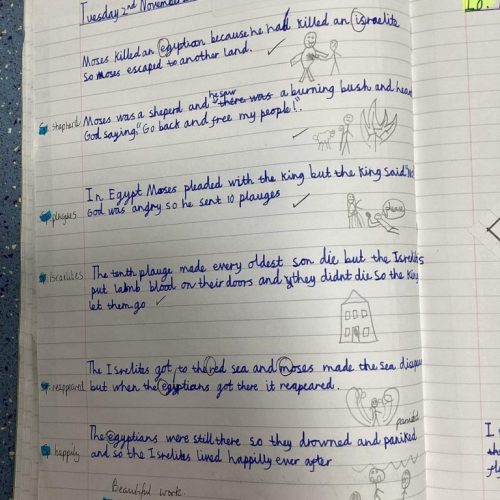 Tuesday 2nd November
Lo.
Moses killed an egyptian because he had killed an israelite
so Moses escaped to another land.
shepherd
Moses was a sheperd and he saw there was a burning bush and hear
God saying, "Go back and free my people!".
In Egypt Moses pleaded with the King but the King said "No
God was angry so he sent 10 plauges
plagues
please
The tenth plauge made every oldest son die but the Isrelits
israelites
put lamb blood on their doors and they didnt die so the King
let them go
The Isrelites got to the red sea and moses made the sea disapear
reappeared
but when the egyptians got there it reapeared.
panicked
The egyptians were still there so they drowned and paniked
happily
and so the Isrelites lived happilly ever after
Beautiful work.